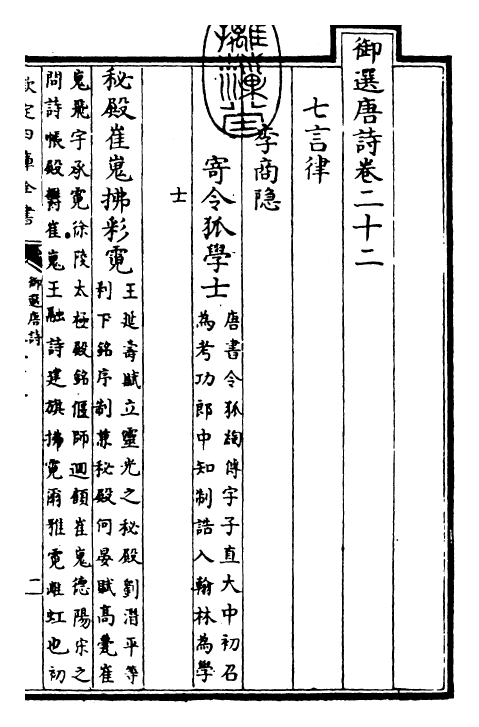 御選唐詩卷二十二
七言律
李商隱
寄令狐學士
唐書令狐綯傳字子直大中初召
為考功郎中知制誥入翰林為學
士
秘殿崔嵬拂彩霓
王延壽賦立靈光之秘殿劉潛平等
刹下銘序制兼秘殿何晏賦高甍崔
嵬飛宇承霓徐陵太極殿銘偃師迴顧崔嵬德陽宋之
問詩帳殿鬱崔嵬王融詩建旗拂霓爾雅霓雌虹也初
欽定四庫全書
御選唐詩
二